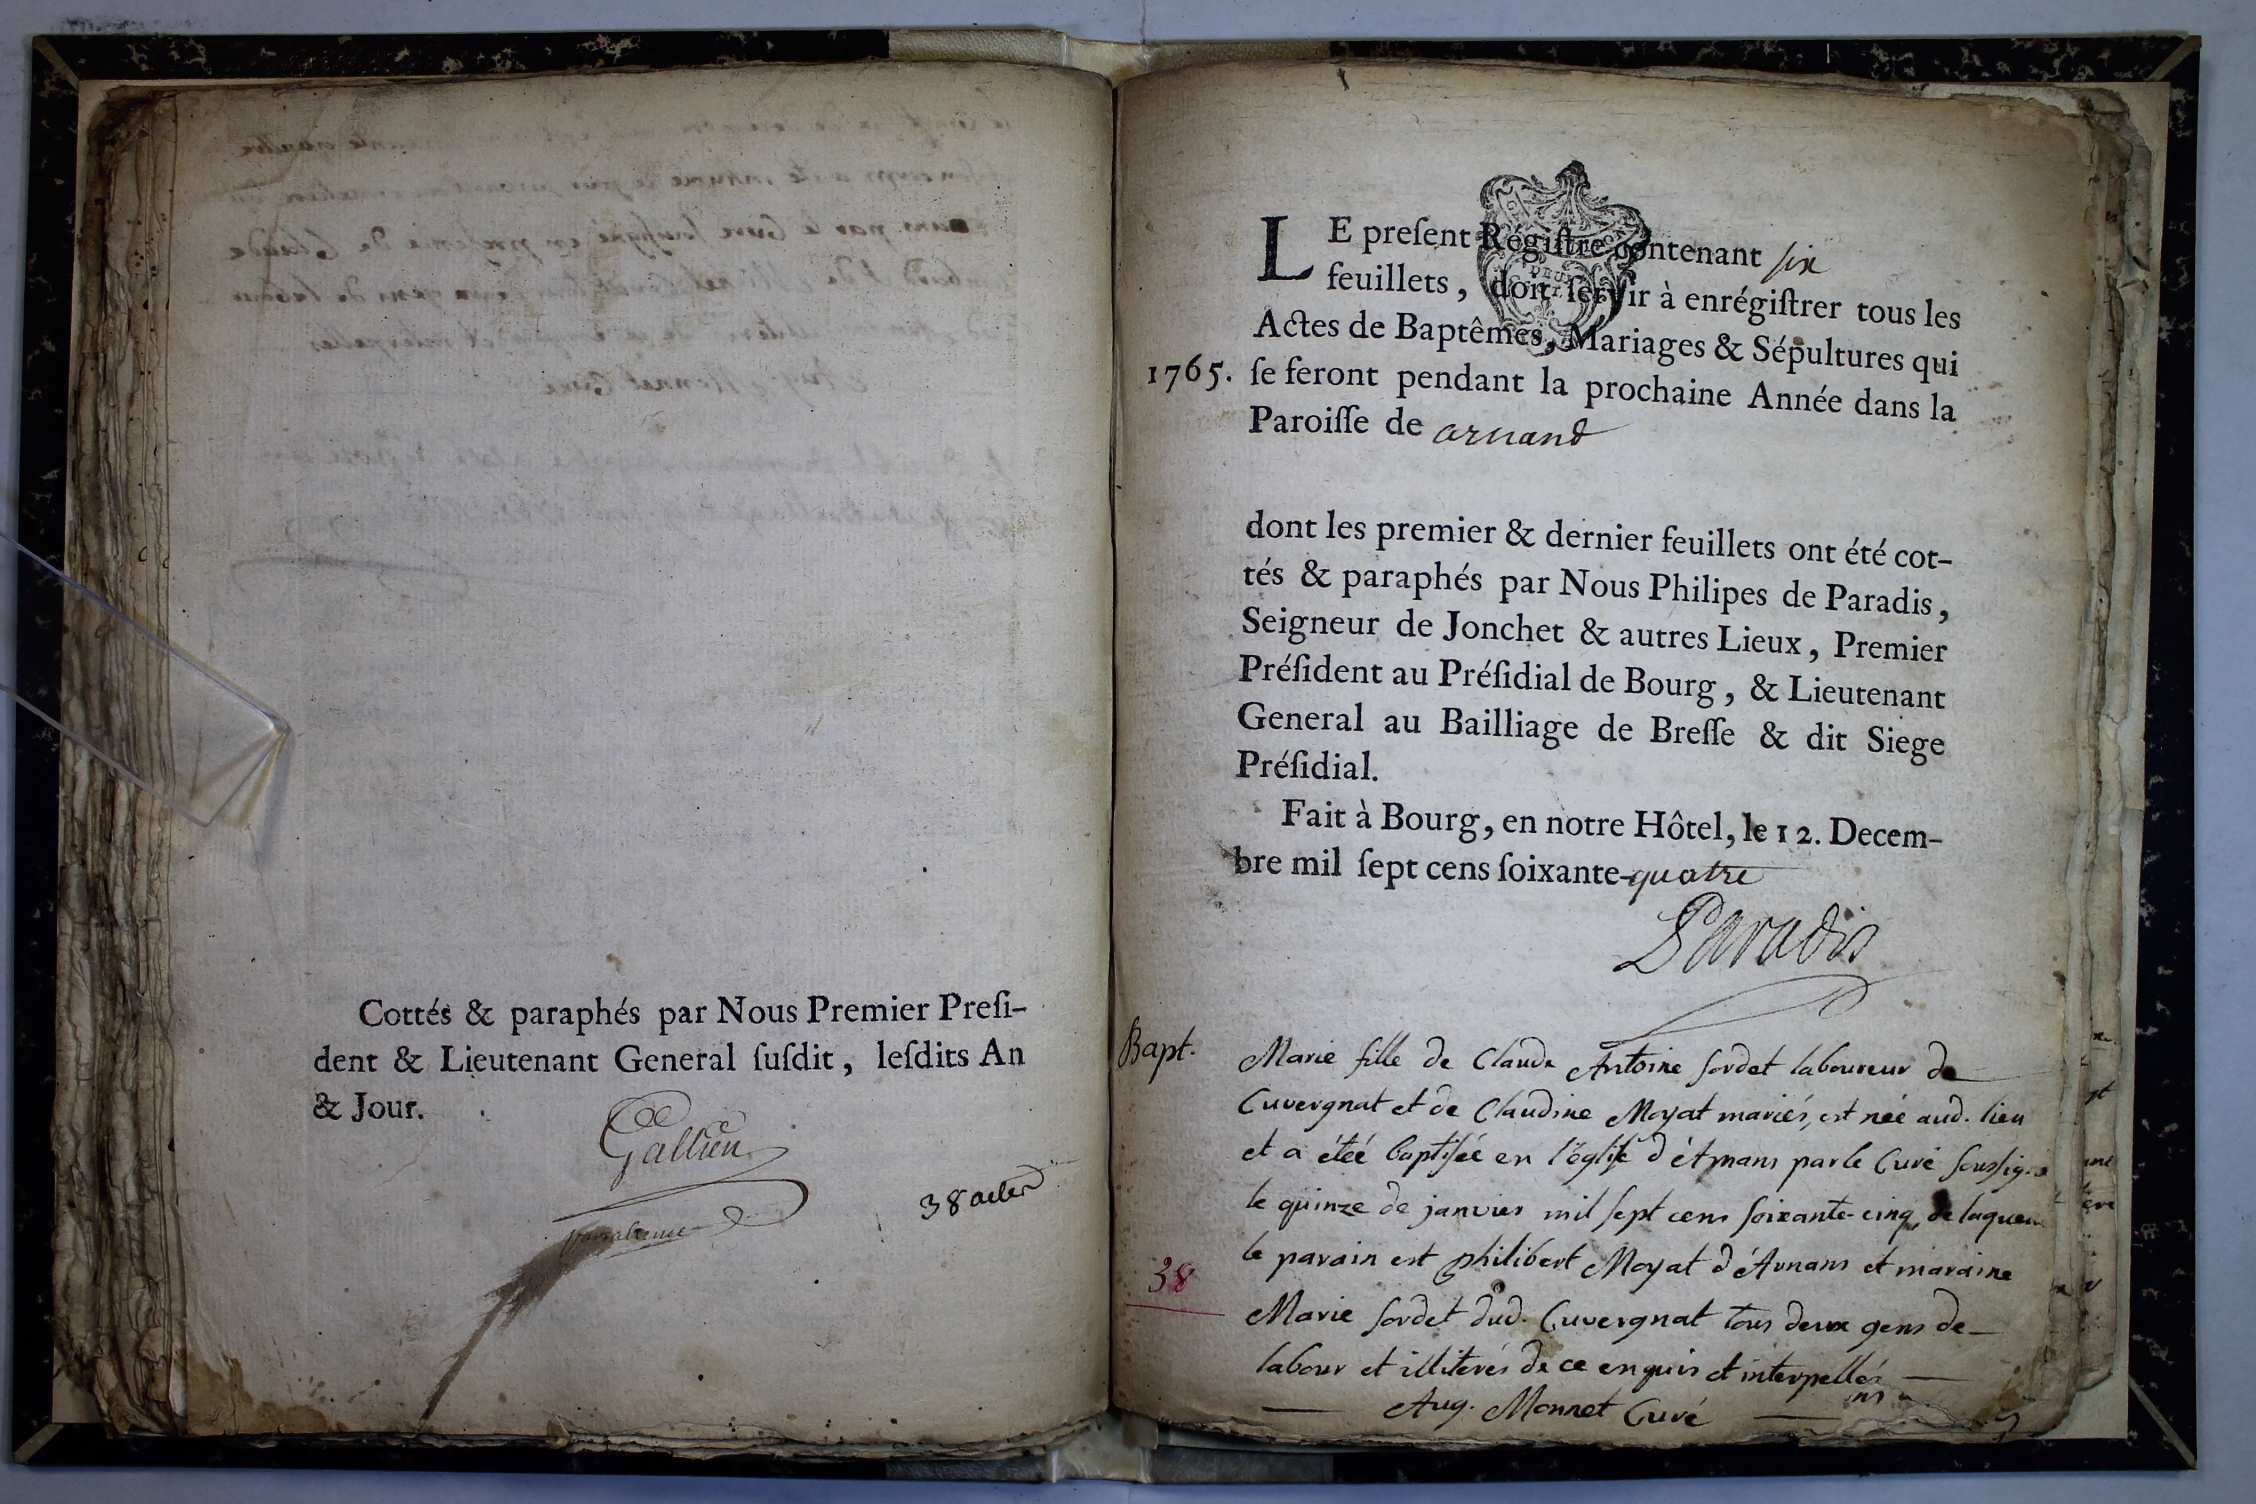 Cottés & paraphés par Nous Premier Preſi-
dent & Lieutenant General ſuſdit, leſdits An
& Jour.
Gallien
38 actes
LE preſent Régiſtre contenant six
feuillets, doit ſervir à enrégiſtrer tous les
Actes de Baptêmes, Mariages & Sépultures qui
1765. ſe feront pendant la prochaine Année dans la
Paroiſſe de arnand
dont les premier & dernier feuillets ont été cot-
tés & paraphés par Nous Philipes de Paradis,
Seigneur de Jonchet & autres Lieux, Premier
Préſident au Préſidial de Bourg, & Lieutenant
General au Bailliage de Breſſe & dit Siege
Préſidial.
Fait à Bourg, en notre Hôtel, le 12. Decem-
bre mil ſept cens ſoixante-quatre
Paradis
Bapt. Marie fille de Claude Antoine Sordet laboureur de
Cuvergnat et de Claudine Moyat mariés, est née aud. lieu
et a étéé baptisée en l'église d'Arnans par le Curé soussigné
le quinze de janvier mil sept cens soixante-cinq, de laquel
le parain est philibert Moyat d'Arnans et maraine
38
Marie Sordet dud. Cuvergnat tous deux gens de
labour et illiterés de ce enquis et interpellés
Aug. Monnet Curé